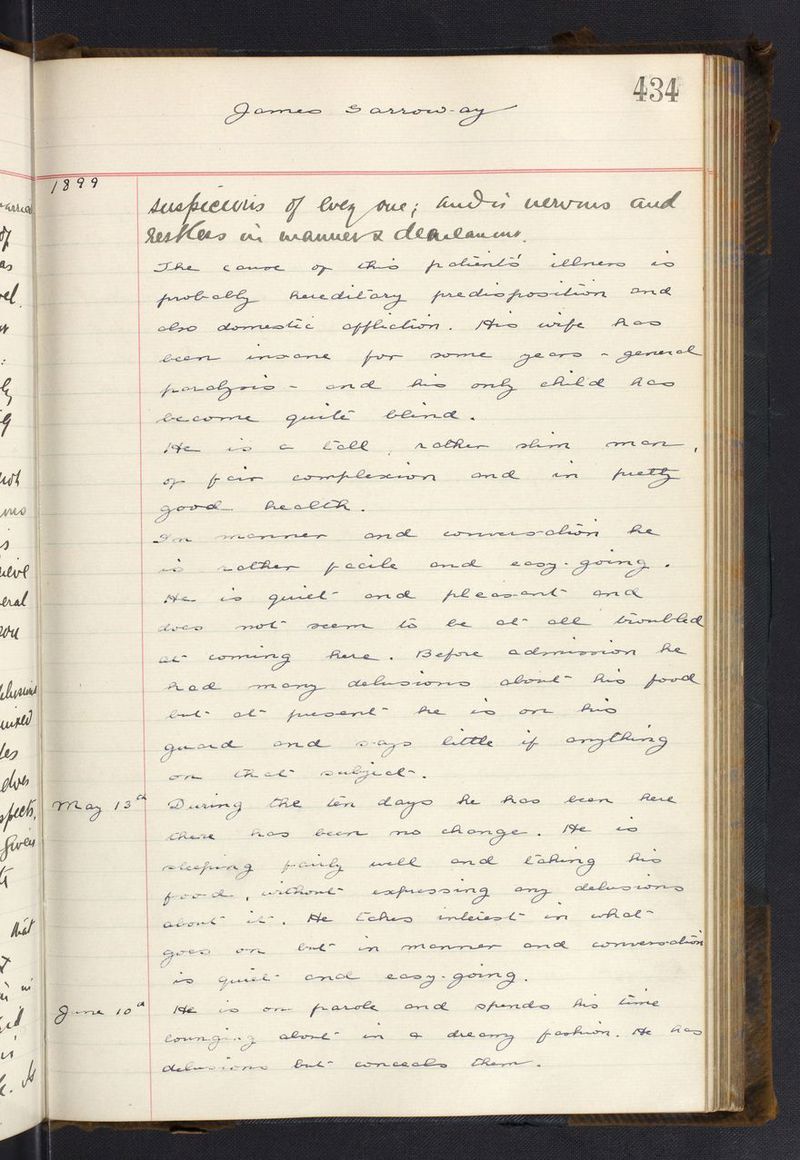 434
James Garroway
1899
suspicious of every one; and is nervous and
restless in manner & demeanour.
The cause of this patient's illness is
probably hereditary predisposition and
also domestic affliction. His wife has
been insane for some years - general
paralysis - and his only child has
become quite blind.
He is a tall, rather slim man,
of fair complexion and in pretty
good health.
In manner and conversation he
is rather facile and easy-going.
He is quiet and pleasant and
does not seem to be at all troubled
at coming here. Before admission he
had many delusions about his food
but at present he is on his
guard and says little if anything
on that subject.
May 13th During the ten days he has been here
there has been no change. He is
sleeping fairly well and taking his
food, without expressing any delusions
about it. He takes interest in what
goes on but in manner and conversation
is quiet and easy-going.
June 10th He is on parole and spends his time
lounging about in a dreamy fashion. He has
delusions but conceals them.